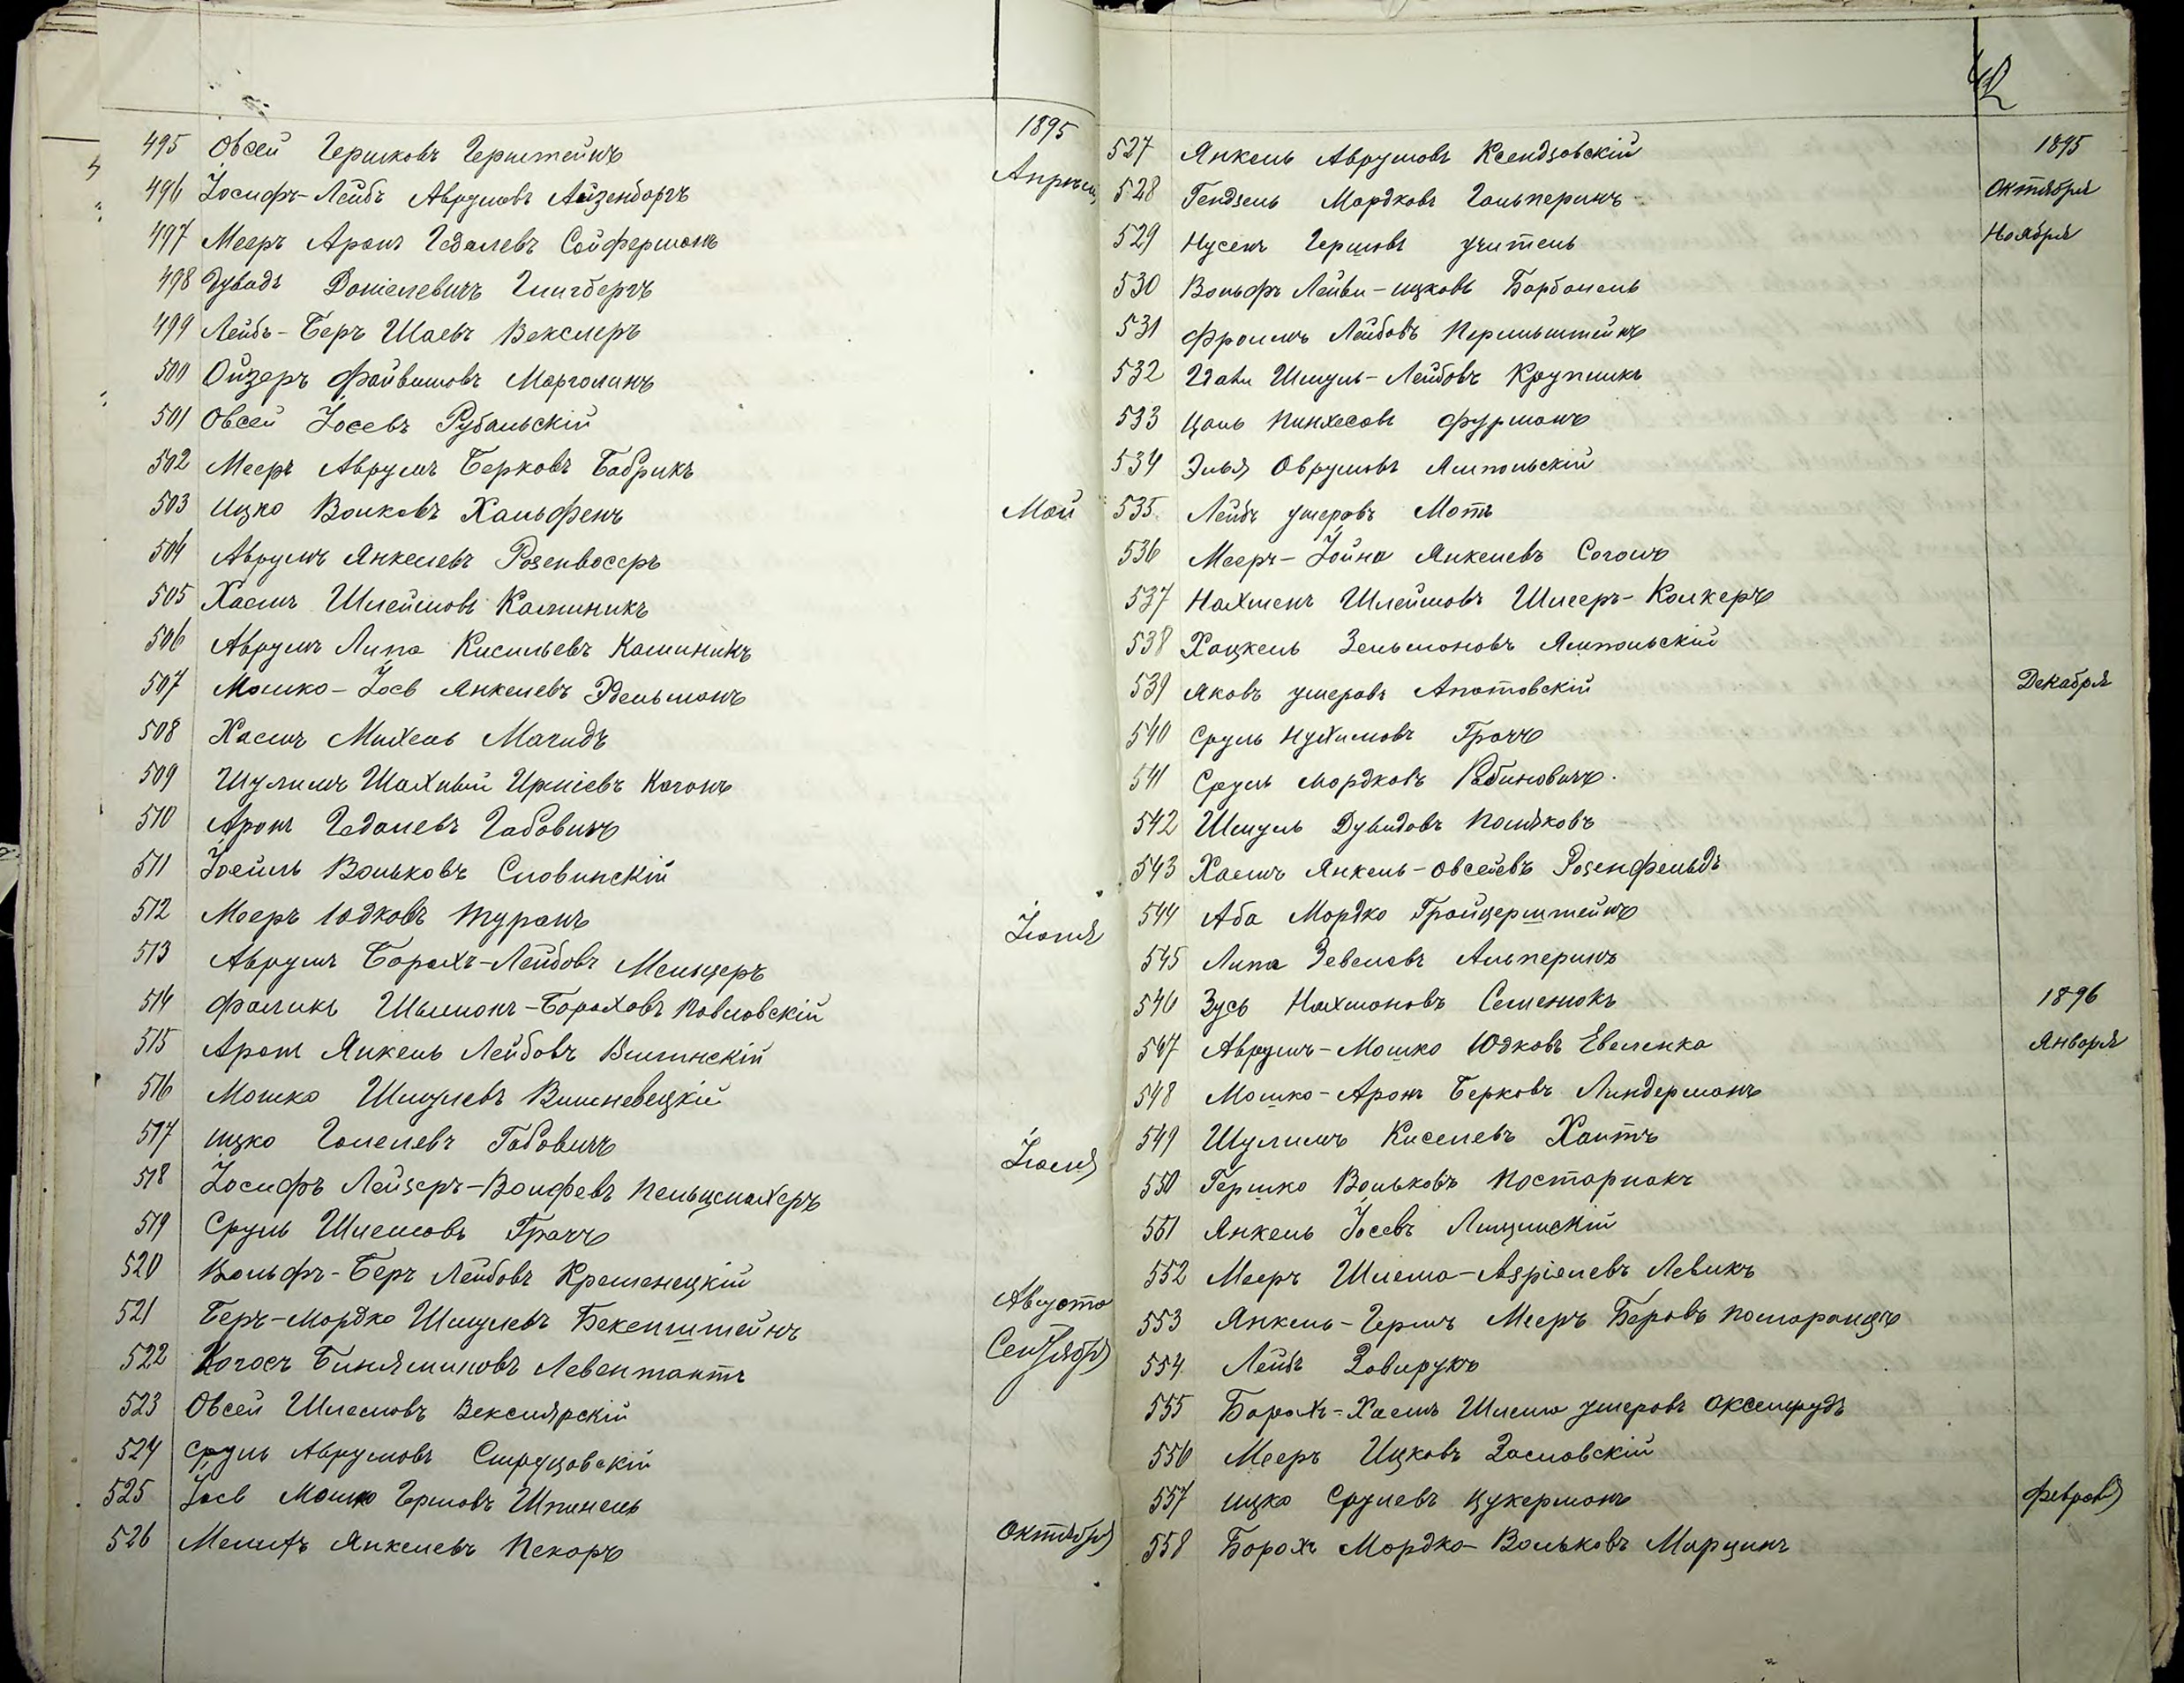 1895
495 Овсей Гершковъ Герштейнъ
Апрѣля
496 Іосифъ-Лейбъ Аврумовъ Айзенборгъ
497 Мееръ Аронъ Гедалевъ Сойферманъ
498 Дувидъ Даніелевичъ Гинзбергъ
499 Лейбъ-Беръ Шаевъ Векслеръ
500 Ойзеръ Файвишовъ Марголинъ
501 Овсей Іосевъ Рубальскій
502 Мееръ Аврумъ Берковъ Бабрикъ
503 Ицко Волковъ Хальфенъ Май
504 Аврумъ Янкелевъ Розенвасеръ
505 Хаимъ Шлеймовъ Калминикъ
506 Аврумъ Липа Кисильевъ Калининъ
507 Мошко-Іось Янкелевъ Эдельманъ
508 Хаимъ Михель Магидъ
509 Шулимъ Шахный Ирміевъ Каганъ
510 Аронъ Гедалевъ Габовичъ
511 Іоейль Вольковъ Словинскій
512 Мееръ Юдковъ Туранъ Іюня
513 Аврумъ Борахъ-Лейбовъ Мельцеръ
514 Фаликъ Шымонъ-Бороховъ Павловскій
515 Аронъ Янкель Лейбовъ Вилинскій
516 Мошко Шмулевъ Вишневецкій
517 Ицко Гомелевъ Габовичъ Іюля
518 Іосифъ Лейзеръ-Волфевъ Пельцмахеръ
519 Сруль Шлемовъ Грачъ
520 Вольфъ-Беръ Лейбовъ Кременецкій
521 Беръ-Мордко Шмулевъ Бекенштейнъ Августа
522 Хагосъ Биняминовъ Левентантъ Сентября
523 Овсей Шлемовъ Векслярскій
524 Сруль Аврумовъ Струцовскій
525 Іось Мошко Гершовъ Шпинель
526 Мелихъ Янкелевъ Пекаръ Октября
42
527 Янкель Аврумовъ Ксендзовскій 1895
528 Гендзель Мордковъ Гальперинъ Октября
529 Нусенъ Гершовъ Учитель Ноября
530 Вольфъ Лейви-Ицковъ Барбанель
531 Фроимъ Лейбовъ Перльштейнъ
532 Шмуль-Лейбовъ Крупникъ
533 Цаль Пинхесовъ Фурманъ
534 Элья Оврумовъ Ямпольскій
535 Лейбъ Ушеровъ Матъ
536 Мееръ-Іойна Янкелевъ Согалъ
537 Нахменъ Шлеймовъ Шмееръ-Колкеръ
538 Хацкель Зельмоновъ Ямпольскій
539 Яковъ Ушеровъ Апотовскій Декабря
540 Сруль Нухимовъ Грачъ
541 Сруль Мордковъ Рабиновичъ.
542 Шмуль Дувидовъ Поляковъ
543 Хаимъ Янкель-Овсеевъ Розенфельдъ
544 Аба Мордко Грайцерштейнъ
545 Липа Зевелевъ Альперинъ
546 Зусь Нахмоновъ Семенюкъ 1896
547 Аврумъ-Мошко Юдковъ Евеленка Января
548 Мошко-Аронъ Берковъ Линдерманъ
549 Шулимъ Киселевъ Хаитъ
550 Гершко Вольковъ Постарнакъ
551 Янкель Іосевъ Лищинскій
552 Мееръ Шлема-Азріелевъ Левикъ
553 Янкель-Гершъ Мееръ Беровъ Помаранцъ
554 Лейбъ Завирухъ
555 Борахъ-Хаимъ Шлема Ушеровъ Оксемрудъ
556 Мееръ Ицковъ Заславскій
557 Ицко Срулевъ Цукерманъ Февраля
558 Борохъ Мордко-Вольковъ Марцинъ